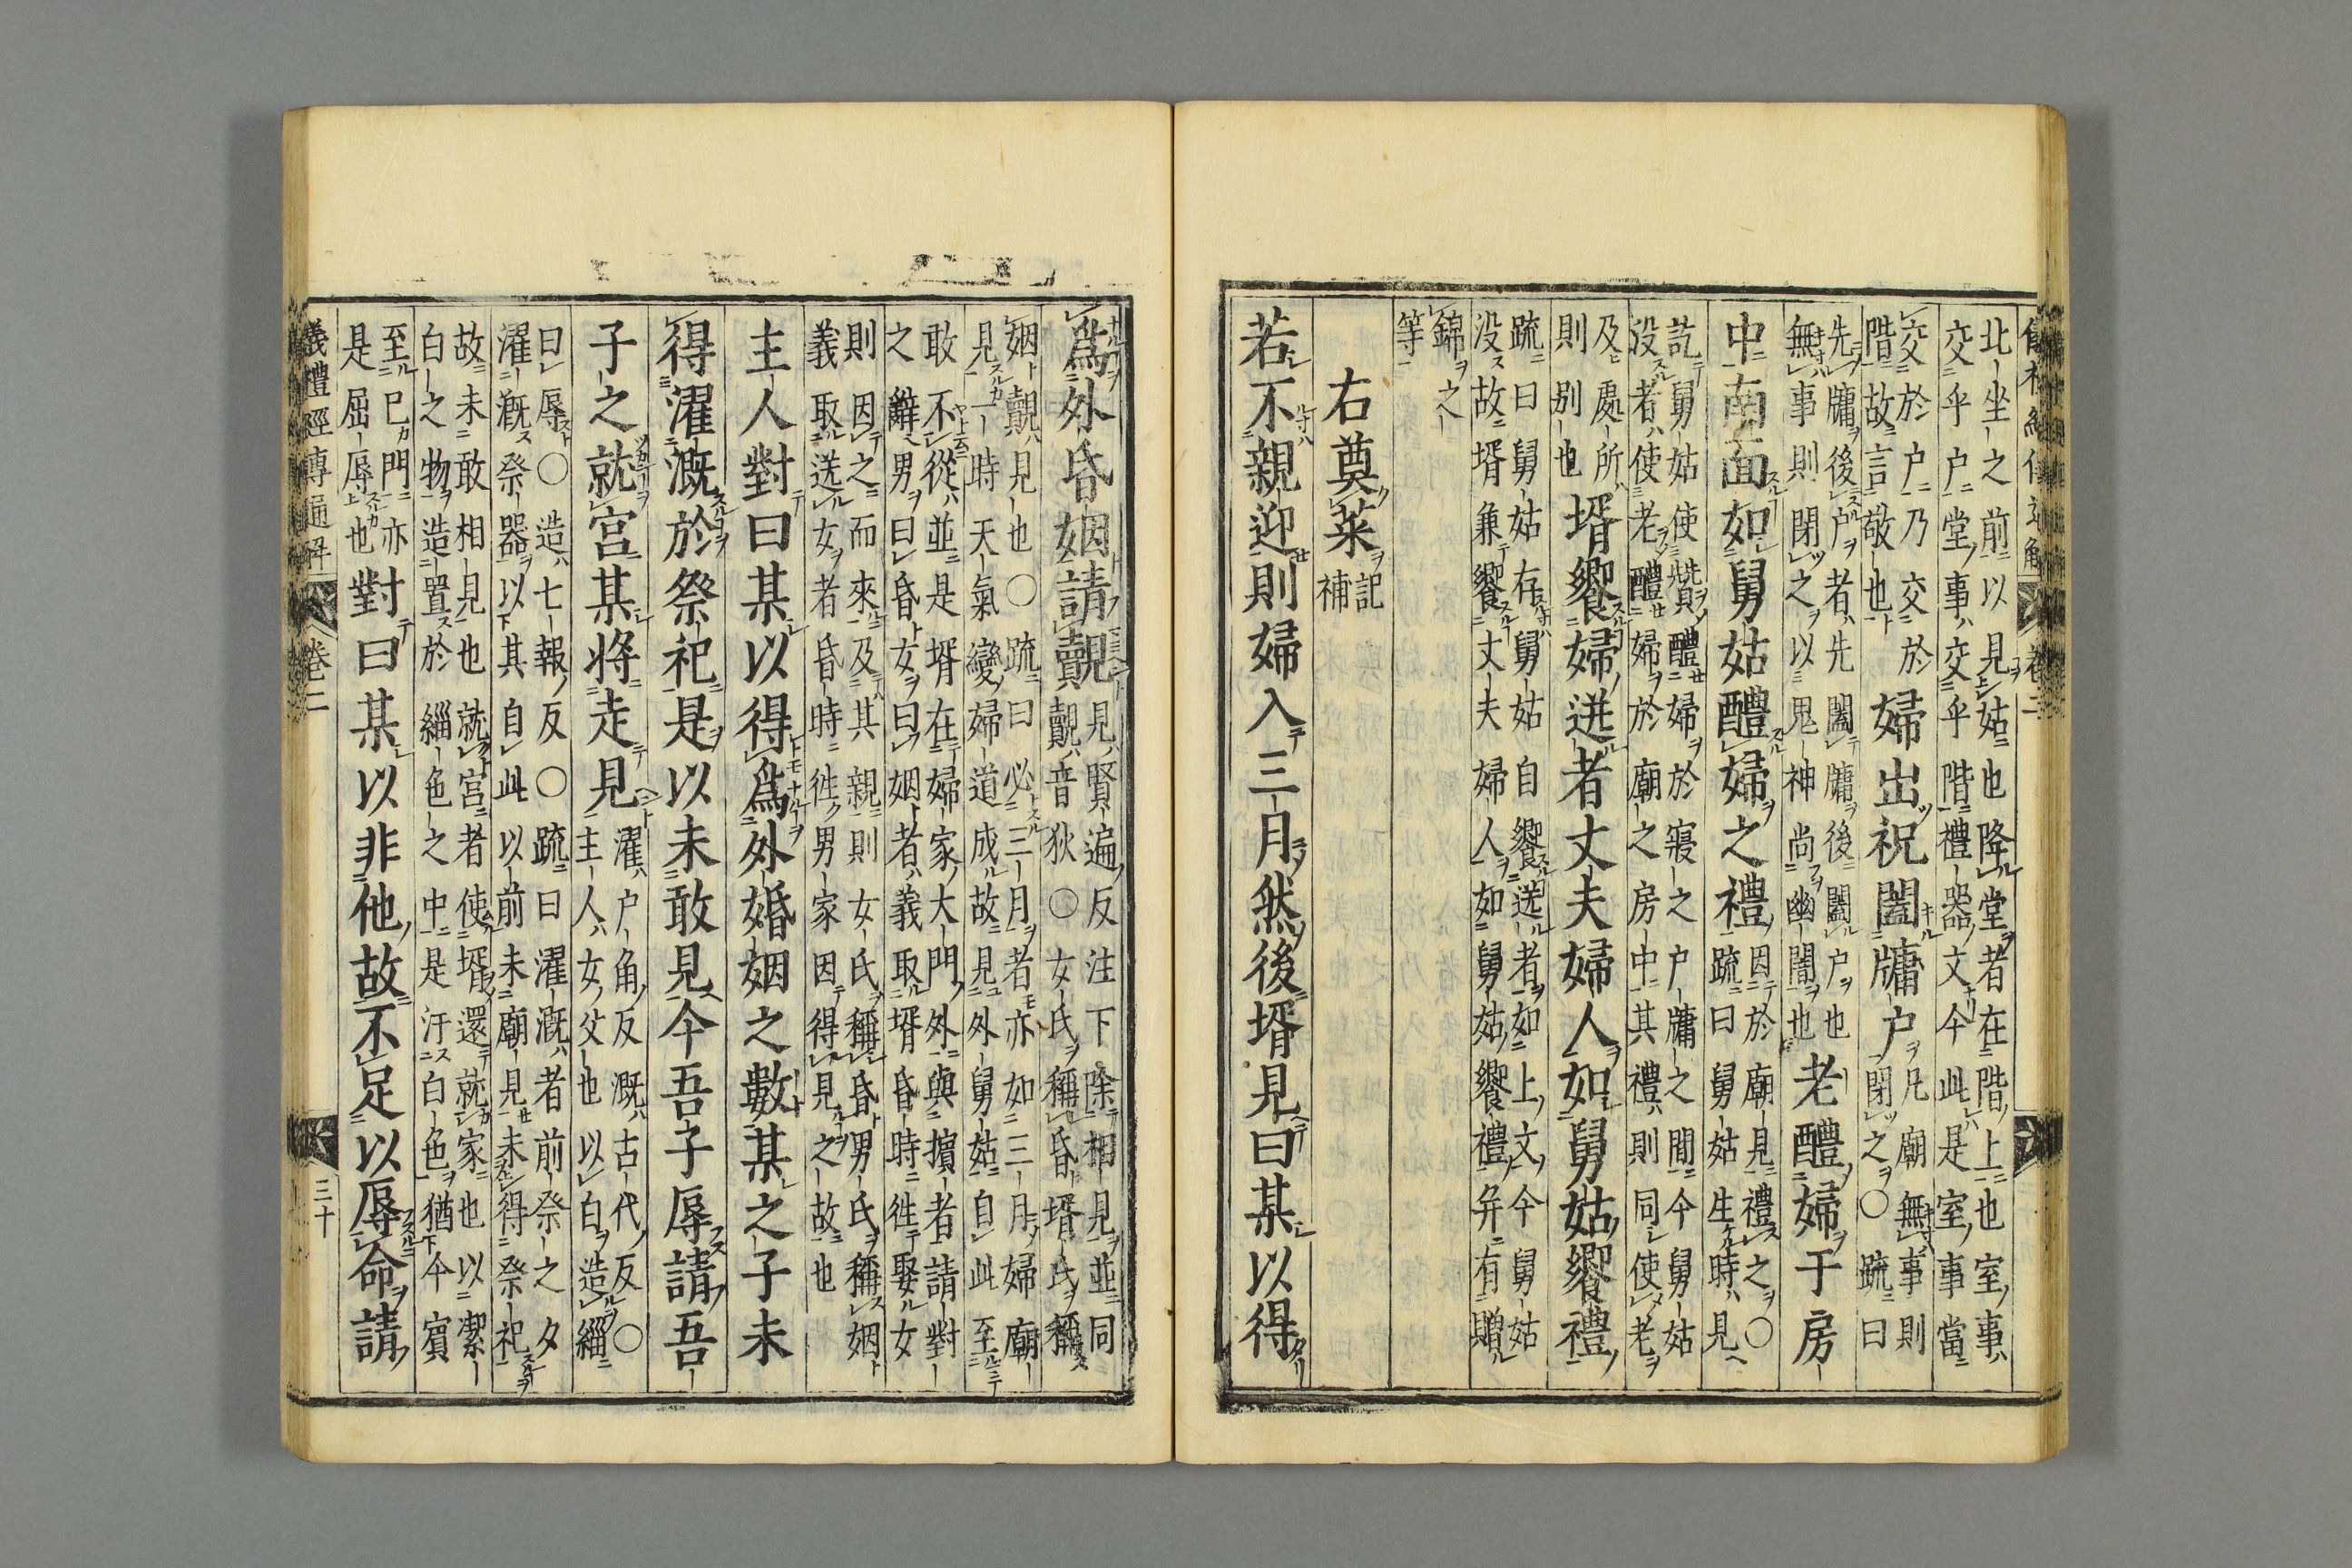 北坐之前以見姑也降堂者在階上也室事
交乎户堂事交乎階禮器文今此是室事當
交於户乃交於
階故言敬也
婦出祝闔牖户
凡廟無事則
閉之○疏曰
先牖後户者先闔牖後闔户也
無事則閉之以鬼神尚幽闇也
老醴婦于房
中南面如舅姑醴婦之禮
因於廟見禮之○
疏曰舅姑生時見
訖舅姑使贊醴婦於寢之户牖之間今舅姑
没者使老醴婦於廟之房中其禮則同使老
及處所
則别也
壻饗婦送者丈夫婦人如舅姑饗禮
疏曰舅姑存舅姑自饗送者如上文今舅姑
没故壻兼饗丈夫婦人如舅姑饗禮并有贈
錦之
等
右奠菜
記
補
若不親迎則婦入三月然後壻見曰某以得
爲外昏姻請覿
見賢遍反注下除相見並同
覿音狄○女氏稱昏壻氏稱
姻覿見也○疏曰必三月者亦如三月婦廟
見一時天氣變婦道成故見外舅姑自此至
敢不從並是壻在婦家大門外與擯者請對
之辭男曰昏女曰姻者義取壻昏時徃娶女
則因之而來及其親則女氏稱昏男氏稱姻
義取送女者昏時徃男家因得見之故也
主人對曰某以得爲外婚姻之數某之子未
得濯漑於祭祀是以未敢見今吾子辱請吾
子之就宫某將走見
濯户角反漑古代反○
主人女父也以白造緇
曰辱○造七報反○疏曰濯漑者前祭之夕
濯漑祭器以其自此以前未廟見未得祭祀
故未敢相見也就宫者使壻還就家也以潔
白之物造置於緇色之中是汙白色猶今賓
至已門亦
是屈辱也
對曰某以非他故不足以辱命請
義禮經傳通解
卷二
三十